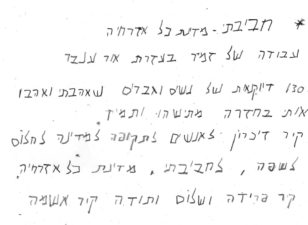 * חביבת - מדינת כל אזרחיה
עבודה של זמיר בעזרת אור ענבר
130 דיוקאות של נשים וגברים שאהבתי ואהבו
אותי בחזרה מתישהו ותמיד
קיר זיכרון לאנשים לתקופה למדינה לחלום
לשפה, לחביבתי, מדינת כל אזרחיה
קיר פרידה ושלום ותודה קיר אשמה